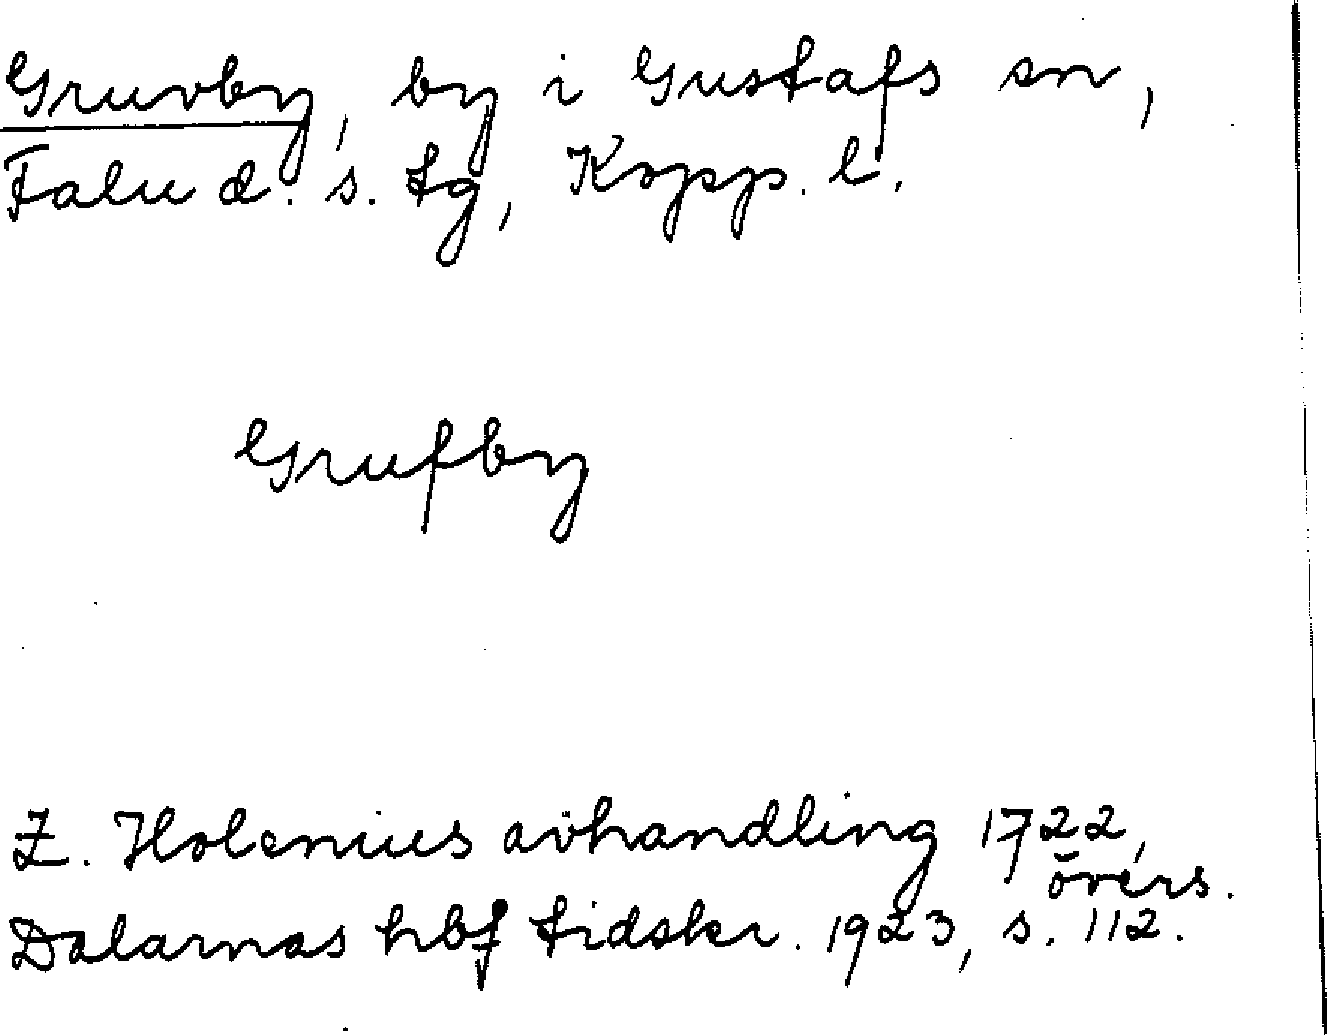 Gruvby, by i Gustafs sn,
Falu d. s. tg, Kopp. l.
Grufby
Z. Holenius avhandling 1722,
övers.
Dalarnas hbf tidskr. 1923, s. 112.